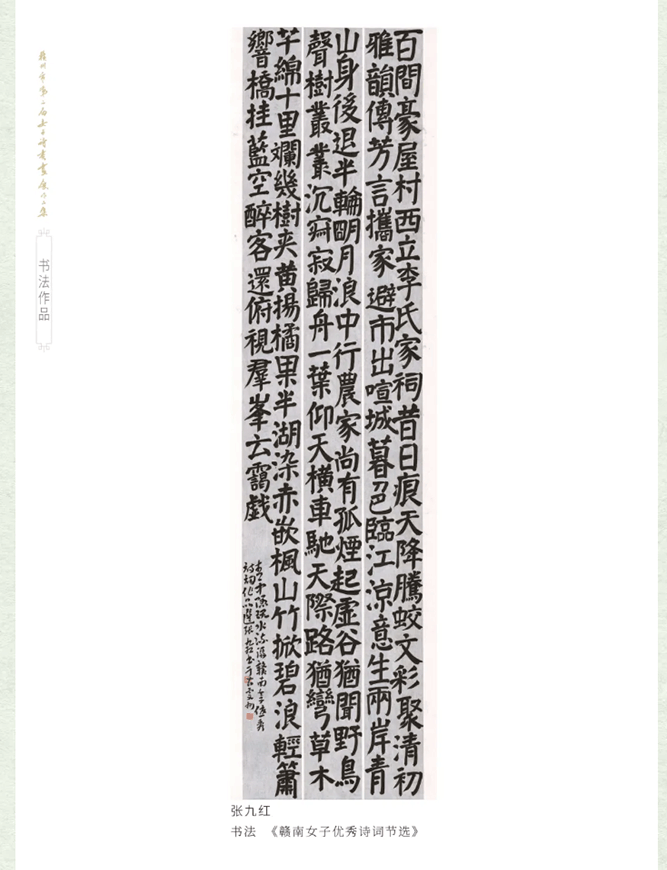 书法作品
百間豪屋村西立李氏家祠昔日痕天降騰蛟文彩聚清初
雅韻傳芳言攜家避市出喧城暮色臨江涼意生兩岸青
山身後退半輪明月浪中行農家尚有孤煙起虛谷猶聞野鳥
聲樹叢叢沉寂寂歸舟一葉仰天橫車馳天際路猶彎草木
芊綿十里斕幾樹夾黄揚橘果半湖染赤嵌楓山竹掀碧浪輕簫
響橋挂藍空醉客還俯視羣峯云靄戲
张九红
书法 《赣南女子优秀诗词节选》